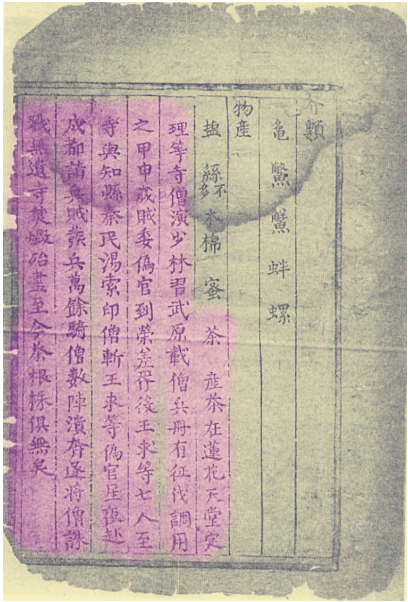 介類
亀 鱉 蚌 螺
物產
絲不多 木棉 蜜 茶 產茶在蓮花天堂定
理等寺僧演少林習武原載僧兵冊有征伐調用
之甲申歲賊委偽官到榮差後王求等七人至
寺與知縣秦民湯索印僧斬王求等偽官星夜赴
成都請兵賊發兵萬餘騎僧數陣潰奔逐將僧誅
戮無遺寺焚燬殆盡至今茶根株俱無矣